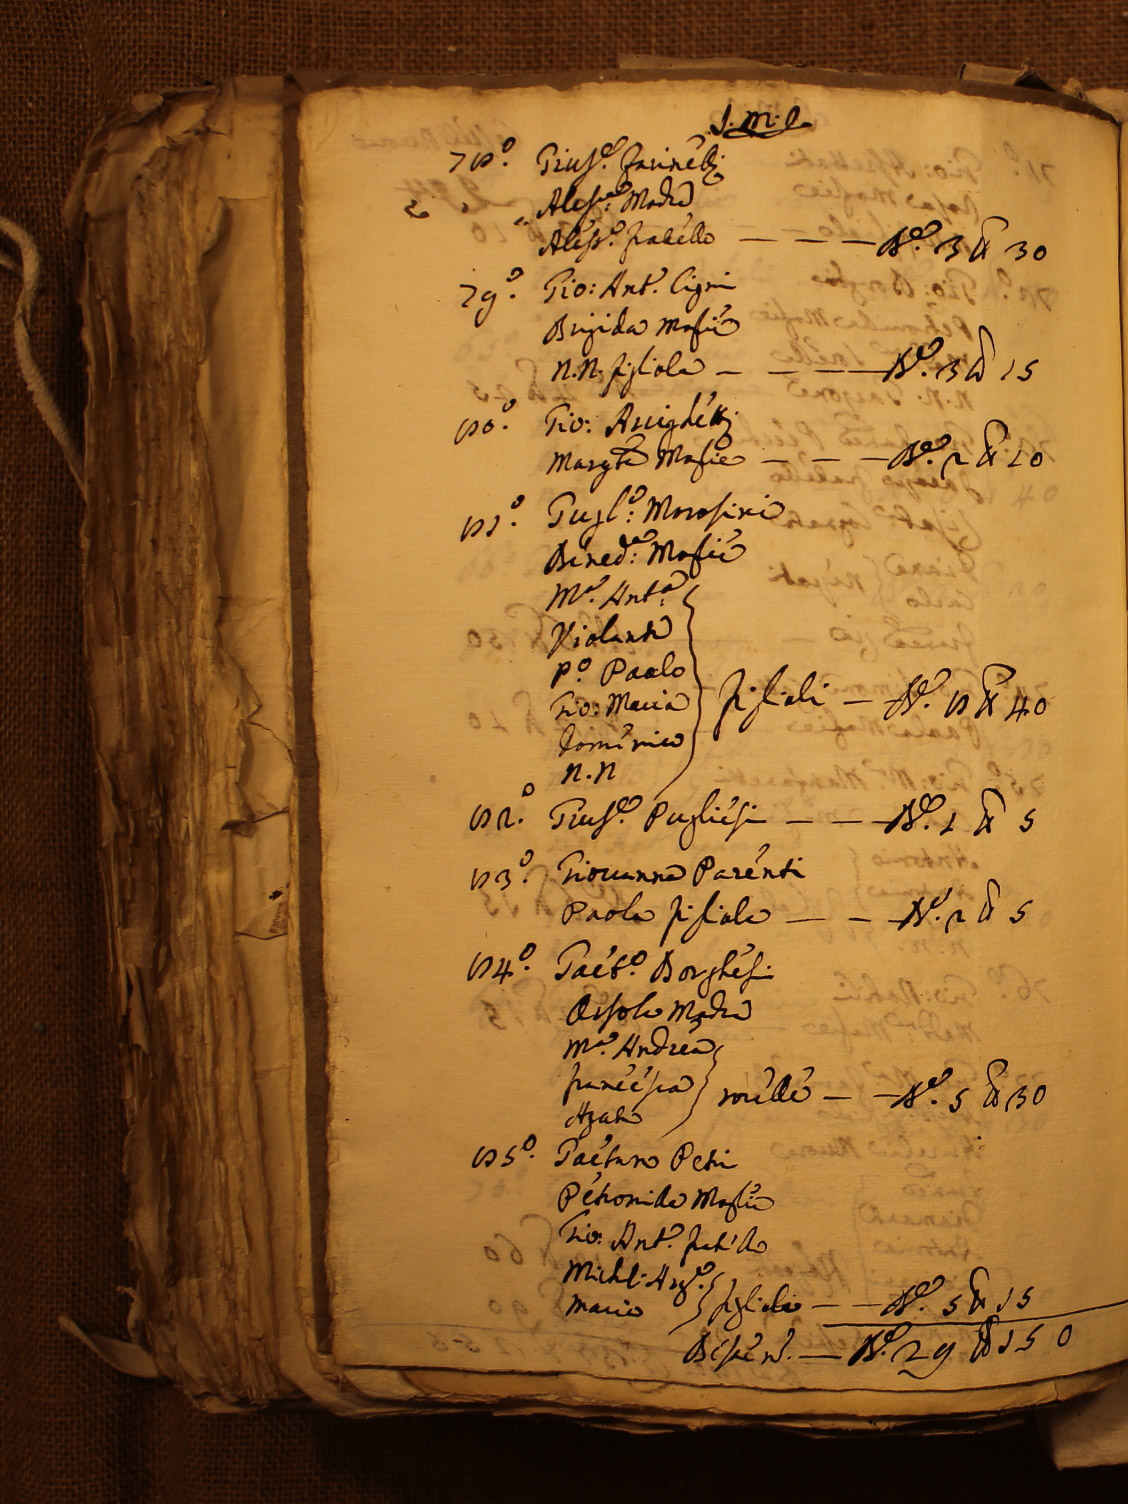 J.M.J
78.º Gius.e Farinelli
Aless.a Madre
Aless.º fratello — — — N.º 3 30
79.º Gio: Ant.º Cigni
Brigida Moglie
N.N. figliola — — — N.º 3 15
80.º Gio: Arrighetti
Margta Moglie — — — N.º 2 20
81.º Gugl.º: Morosini
Bened.a: Moglie
M.a Ant.a
Violante
P.º Paolo
Gio: Maria figlioli — N.º 8 40
Domenico
N.N
82.º Gius.e Pugliesi — — — N.º 1 5
83.º Giovanna Parenti
Paola figliola — — — N.º 2 5
84.º Gaet.º Borghesi
Orsola Madre
M.a Andrea
Francesca sorelle — — N.º 5 30
Agata
85.º Gaetano Petri
Petronilla Moglie
Gio: Ant.º fratello
Michl: Ang.º
Maria figlioli — — N.º 5 15
N.º 29 150